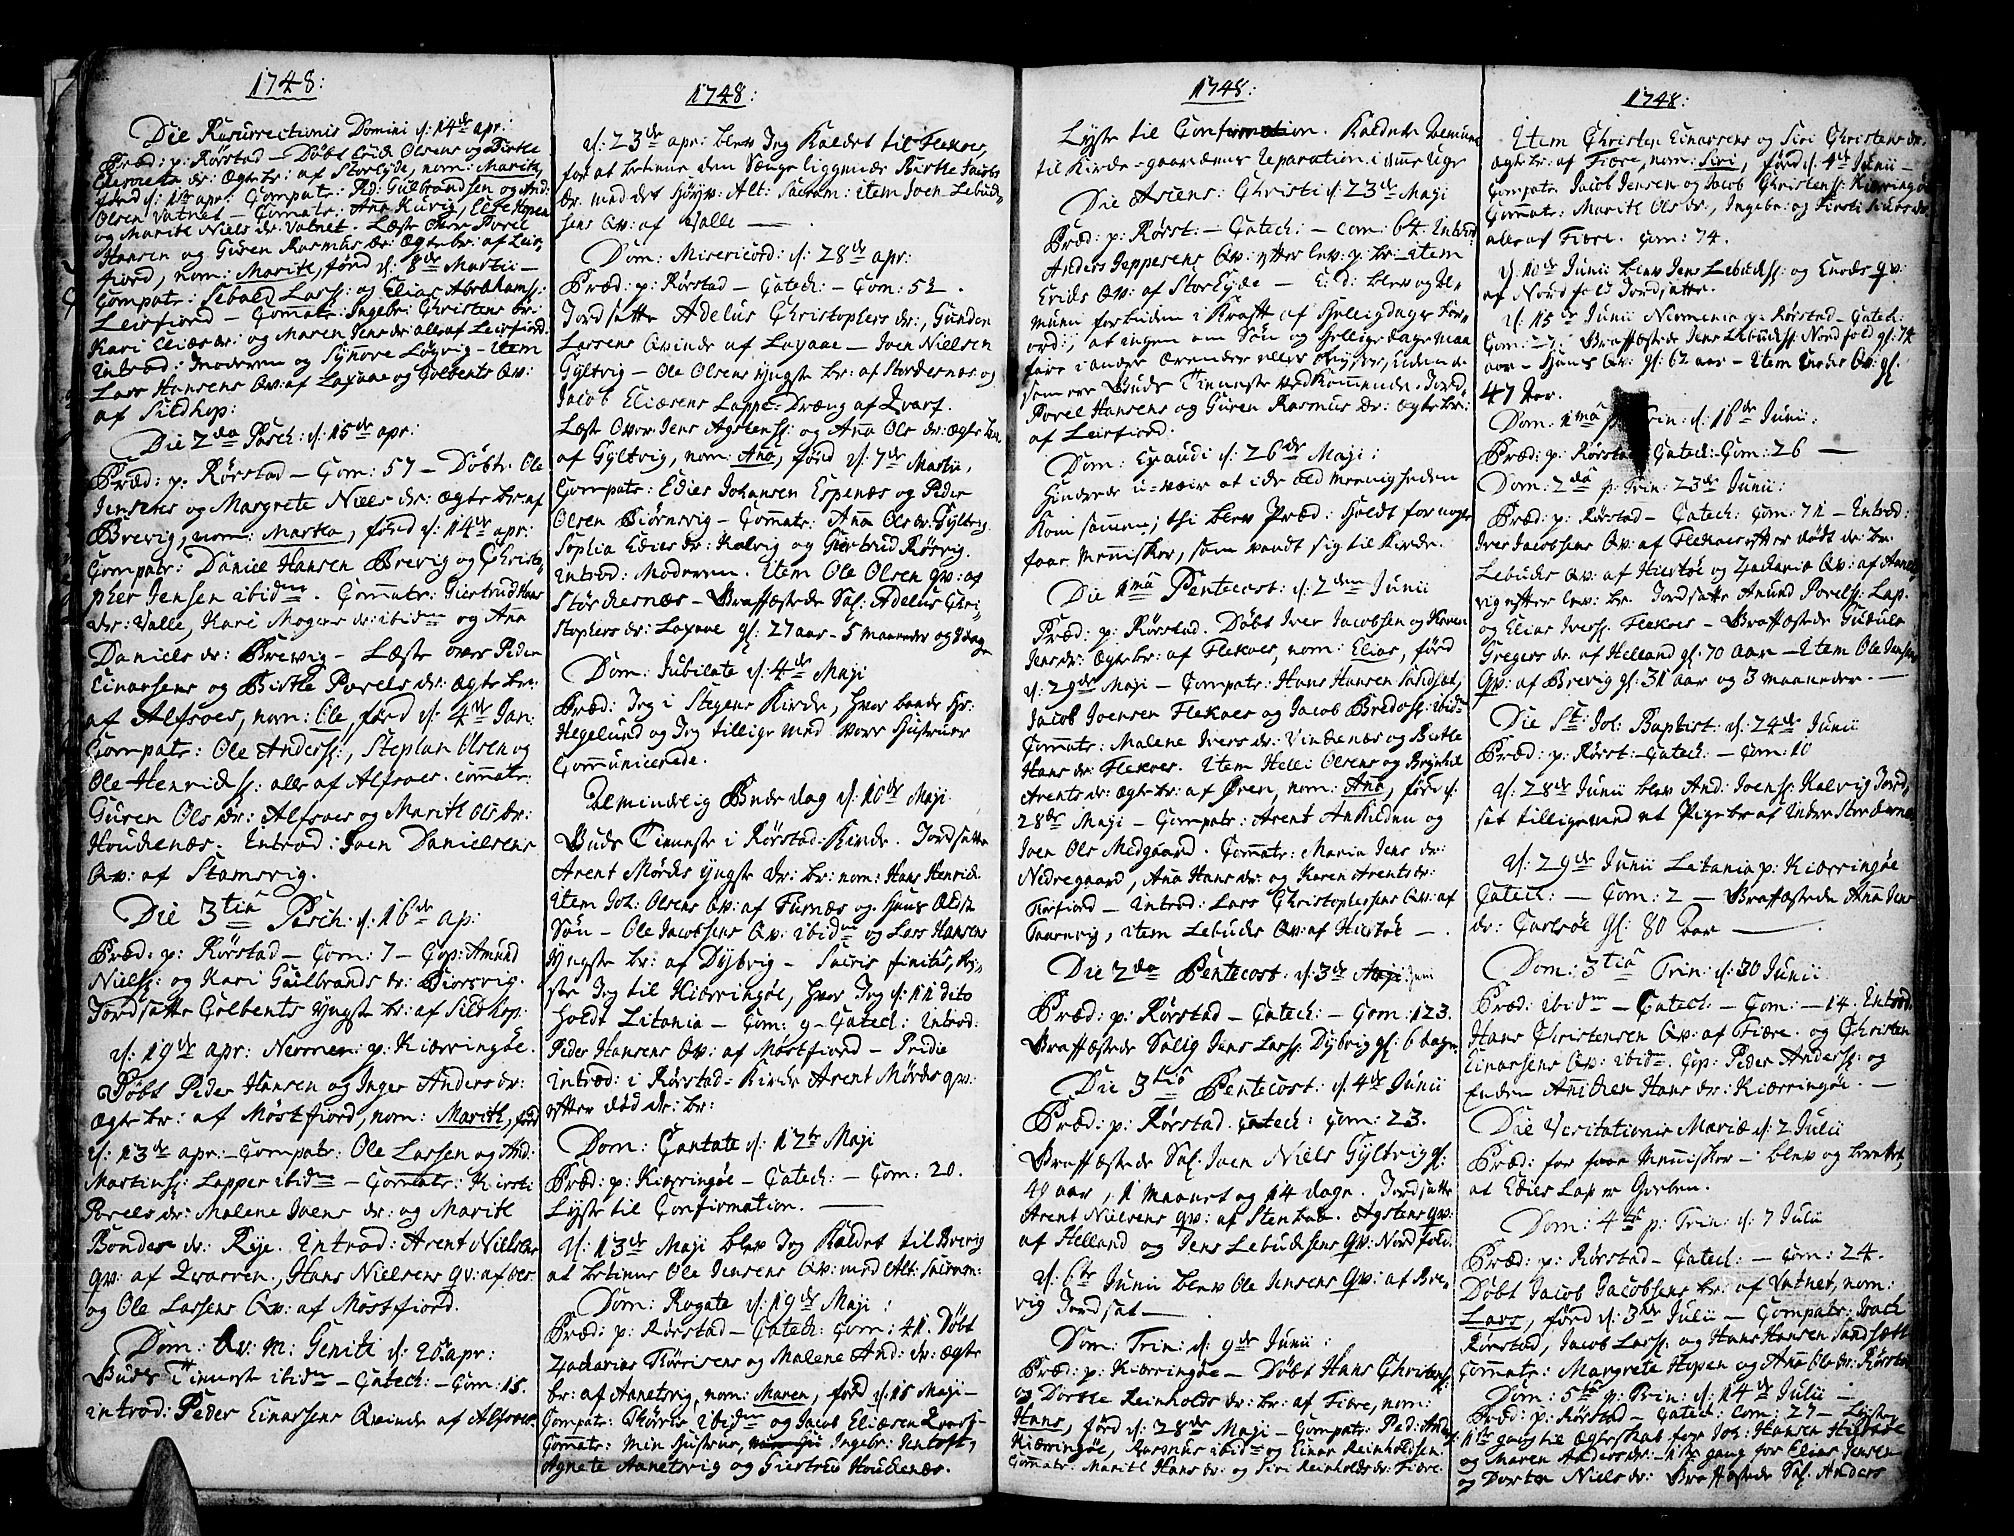 1748:
Die Resurrectionis Domini d: 14de apr:
Præd: p: Rørstad — Døbt Erich Olsens og Birthe
dr: Ægte br: af Storeyde, nom: Marith,
fød d: 1te apr: Compatr: Pd: Gulbrandsen og And:
Olsen Vatnet — Comatr: Ana Husvig, Hopen
og Marith Niels dr: Vatnet. Læst over Povel
Hansen og Guren Rasmus dr: Ægte br: af Leir-
fiord, nom: Marith, fød d: 8de Martii —
Compatr: Sebald Larss: og Elias Abrahamss:
Leirfiord — Comatr: Ingebr: Christens dr:
Kari Eliæ dr: og Maren Jens dr: alle af Leirfiord.
Introd: Moderen og Synove Løgvig — Item
Lars Hansens Qv: af Laxaae og Golbents Qv:
af Sildhop:
Die 2da Pasch: d: 15de apr:
Præd: p: Rørstad — Com: 57 — Døbt Ole
Jensens og Margrete Niels dr: Ægte br: af
Brevig, nom: Martha, fød d: 14de apr:
Compatr: Daniel Hansen Brevig og Christo-
pher Jensen ibidm. Comatr: Giertrud Hans
dr: Valle, Kari Mogens dr: ibidm og Ana
Daniels dr: Brevig — Læste over Peder
Einarsens og Birthe Povels dr: Ægte br:
af Alfsoes, nom: Ole, fød d: 4de Jan:
Compatr: Ole Anderss:, Stephan Olsen og
Ole Henrichss: alle af Alfsoes. Comatr:
Guren Ols dr: Alfsoes og Marith Ols dr:
Houkenæs. Introd: Joen Danielsens
Qv: af Stamsvig.
Die 3tia Pasch: d: 16de ap:
Præd: p: Rørstad — Com: 7 — Cop: Amund
Nielss: og Kari Gulbrands dr: Biørsvig.
Jordsatte Golbents yngste br: af Sildhop:
d: 19de apr: Nermen: p: Kierringøe.
Døbt Peder Hansen og Inger Anders dr:
Ægte br: af Mostfiord, nom: Marith, fød
d: 13de apr: — Compatr: Ole Larsen og And:
Martinss: Lapper ibidm — Comatr: Kirsti
Povels dr: Malene Joens dr: og Marith
Bendes dr: Kye. Introd: Arent Nielsens
Qv: af Qvarven, Hans Nielsens Qv: af
og Ole Larsens Qv: af Mostfiord.
Dom: Qv: M: Geniti d: 26. apr:
Buds Tienneste ibidm — Catech: — Com: 15.
introd: Peder Einarsens Qvinde af Alfsoes
1748:
d: 23de apr: blev Jeg Kaldet til Flekoes,
for at betiene den Senge liggende Birthe Jacobs
dr: med det Høyv: Alt: Sacram: item Joen Lebud-
sens Qv: af Valle —
Dom: Misericord: d: 28de apr:
Præd: p: Rørstad — Catech: — Com: 52.
Jordsatte Adelus Christophers dr:, Gunder
Larsens Qvinde af Laxaae — Joen Nielsen
Gyltvig — Ole Olsens yngste br: af Stordernæs og
Jacob Eliæsens Lappe-Dræng af Qvarf.
Læste Over Jens Agstenss: og Ana Ols dr: Ægte br:
af Gyltvig, nom: Ana, fød d: 7de Martii,
Compatr: Edies Johansen Espenæs og Peder
Olsen Biørnsvig — Comatr: Ana Ols dr: Gyltvig
Sophia Edies dr: Kalvig og Giertrud Rørvig.
introd: Moderen. Item Ole Olsen Qv: af
Stordernæs — Graffæstede Sal: Adelus Chri-
stophers dr: Laxaae gl: 27 aar — 5 maaneder og 8 dage
Dom: Jubilate d: 4de Maji
Præd: Jeg i Stegens Kirke, hvor baade Hr:
Hegelund og Jeg tillige med vore Hustruer
Communicerede.
Almindelig Bede dag d: 10de Maji
Buds Tienneste i Rørstad-Kirke. Jordsatte
Arent Mørchs yngste dr: br: nom: Hans Henrich.
item Joh: Olsens Qv: af Furnæs og Hans Eldste
Søn — Ole Jacobsens Qv: ibidm og Lars Hansens
Yngste br: af Dybvig — Sacris finitis, Rey-
ste Jeg til Kierringøe, hvor Jeg d: 11 dito
Holdt Litania — Com: 9 — Catech: Introd:
Peder Hansens Qv: af Mostfiord — Pridie
introd: i Rørstad-Kirke Arent Mørchs Qv:
efter død dr: br:
Dom: Cantate d: 12te Maji
Præd: p: Kierringøe — Catech: — Com: 20.
Lyste til Confirmation. —
d: 13de Maji blev Jeg Kaldet til Brevig
at betiene Ole Jensens Qv: med Alt: Sacram:
Dom: Rogate d: 19de Maji:
Præd: p: Rørstad — Catech: Com: 41. Døbt
Zacharias Thorrisens og Malene And: dr: Ægte
br: af Anetsvig, nom: Maren, fød d: 15 Maji —
Compatr: Thørris ibidm og Jacob Eliæsen Qvarf —
Comatr: Min Hustrue, Ingebr: Jentoft,
Agnete Anetsvig og Giertrud Houkenæs.
1748:
Lyste til Confirmation. Kaldede Almuen
til Kirke-gaardens Reparation i
Die Ascens: Christi d: 23de Maji
Præd: p: Rørst: — Catech: — Com: 64. Introd:
Anders Jeppesens Qv: efter lev: p: br: item
Erichs Qv: af StorEyde — E: d: blev og Al-
muen forbuden i Kraft af Helligdages For-
ord:, at ingen om Søn og Hellige dage maa
fare i andre Ærender eller Reyser, uden de
som er Guds Tienneste ved Kommende. Jord:
Povel Hansens og Guren Rasmus dr: Ægte br:
af Leirfiord.
Dom: Exaudi d: 26de Maji:
Hindrede u-veir at icke all meenigheden
Kom sammen; thi blev Præd: holdt for nogle
faae Mennisker, som vandt sig til Kirke.
Die 1ma Pentecost: d: 2den Junii
Præd: p: Rørstad. Døbt Iver Jacobsen og Karen
Jens dr: Ægte br: af Flekoes, nom: Elias, fød
d: 29de Maji — Compatr: Hans Hansen Sandset,
Jacob Joensen Flekoes og Jacob Bredess: ibid:
Comatr: Malene Ivers dr: Vindenæs og Birthe
Hans dr: Flekoes. Item Helli Olsens og Brynhil
Arents dr: Ægte br: af Øren, nom: Ana, fød d:
28de Maji — Compatr: Arent Ankilden og
Joen Ols Medgaard. Comatr: Maria Jens dr:
Nedregaard, Ana Hans dr: og Karen Arents dr:
Torfiord — Introd: Lars Christophersens Qv: af
Taarnvig, item Lebuds Qv: af Hiertøe —.
Die 2da Pentecost: d: 3de Juni
Præd: p: Rørstad — Catech: — Com: 123.
Graffæstede Salig Jens Larss: Dybvig gl: 6 dage.
Die 3tia Pentecost: d: 4de Junii
Præd: p: Rørstad. Catech: Com: 23.
Graffæstede Sal: Joen Niels Gyltvig gl:
49 aar, 1 maanet og 14 dage. Jordsatte
Arent Nielsens Qv: af Stenhal. Agstens Qv:
af Helland og Jens Lebudsens Qv: Nordfold.
d: 6te Junii blev Ole Jensens Qv: af Bre-
vig Jordsat —
Dom: Trin: d: 9de Junii:
Præd: p: Kierringøe — Døbt Hans Christenss:
og Dorthe Reinholds dr: br: af Fiære, nom:
Hans, fød d: 28de Maji — Compatr: Ped: Anders:
Kierringøe, Rasmus ibidm og Einar Reinholdsen.
Comatr: Marith Hans dr: og Siri Reinholds dr: Fiære.
1748:
Item Christen Einarsens og Siri Christens dr:
Ægte br: af Fiære, nom: Siri, fød d: 4de Junii —
Compatr: Jacob Jensen og Jacob Christenss: Kierringøe
Comatr: Marith Ols dr:, Ingebr: og Kirsti dr:
alle af Fiære. Com: 74.
d: 10de Junii blev Jens Lebudss: og Enochs Qv:
af Nordfold Jordsatte.
d: 15de Junii Nermenia p: Rørstad — Catech:
Com: 27. Graffæstede Jens Lebudss: Nordfold gl: 74
aar — Hans Qv: gl: 62 aar — Item Enochs Qv: gl:
47 aar.
Dom: 1ma p: Trin: d: 16de Junii:
Præd: p: Rørstad Catech: Com: 26 —
Dom: 2da p: Trin: 23de Junii:
Præd: p: Rørstad — Catech: Com: 71 — Introd:
Iver Jacobsens Qv: af Flekoes efter dødt dr: br:
Lebuds Qv: af Hiertøe og Zacharia Qv: af Anets-
vig efter lev: br: Jordsatte Amund Povelss: Lap.
og Elias Iverss: Flekoes — Graffæstede Gudule
Gregers dr: af Helland gl: 70 aar — Item Ole Jensens
Qv: af Brevig gl: 31 aar og 3 maaneder. —
Die St: Joh: Baptist: d: 24de Junii
Præd: p: Rørst: Catech: — Com: 10
d: 28de Junii blev And: Joenss: Kalvig Jord,
sat tillige med et Pige br: af Inder Stordernæs
d: 29de Junii Litania p: Kierringøe
Catech: — Com: 2 — Graffæstede Ana Jens
dr: Carlsøe gl: 80 aar —
Dom: 3tia Trin: d: 30 Junii
Præd: ibidm — Catech: — Com: — 14. Introd:
Hans Christensen Qv: af Fiære. og Christen
Einarsens Qv: ibidm. Cop: Peder Anderss: og
Enken Anichen Hans dr: Kierringøe. —
Die Visitationis Mariæ d: 2 Julii
Præd: for faae Mennisker — blev og berettet,
at Edies Lap er Gorben.
Dom: 4ta p: Trin: d: 7 Julii
Præd: p: Rørstad — Catech: — Com: 24.
Døbt Jacob Jacobsens br: af Vatnet, nom:
Lars, fød d: 3de Julii — Compatr: Isach
Rørstad, Jacob Larss: og Hans Hansen Sandsætt
Comatr: Margrete Hopen og Ana Ols dr: Rørstad
Dom: 5ta p: Trin: d: 14de Julii —
Præd: p: Rørstad — Catech: Com: 27 — Lyste
1te gang til Ægteskab for Joh: Hansen
og Maren Anders dr: — 1te gang for Elias Jensen
og Dorthe Niels dr: Graffæstede Sal: Anders